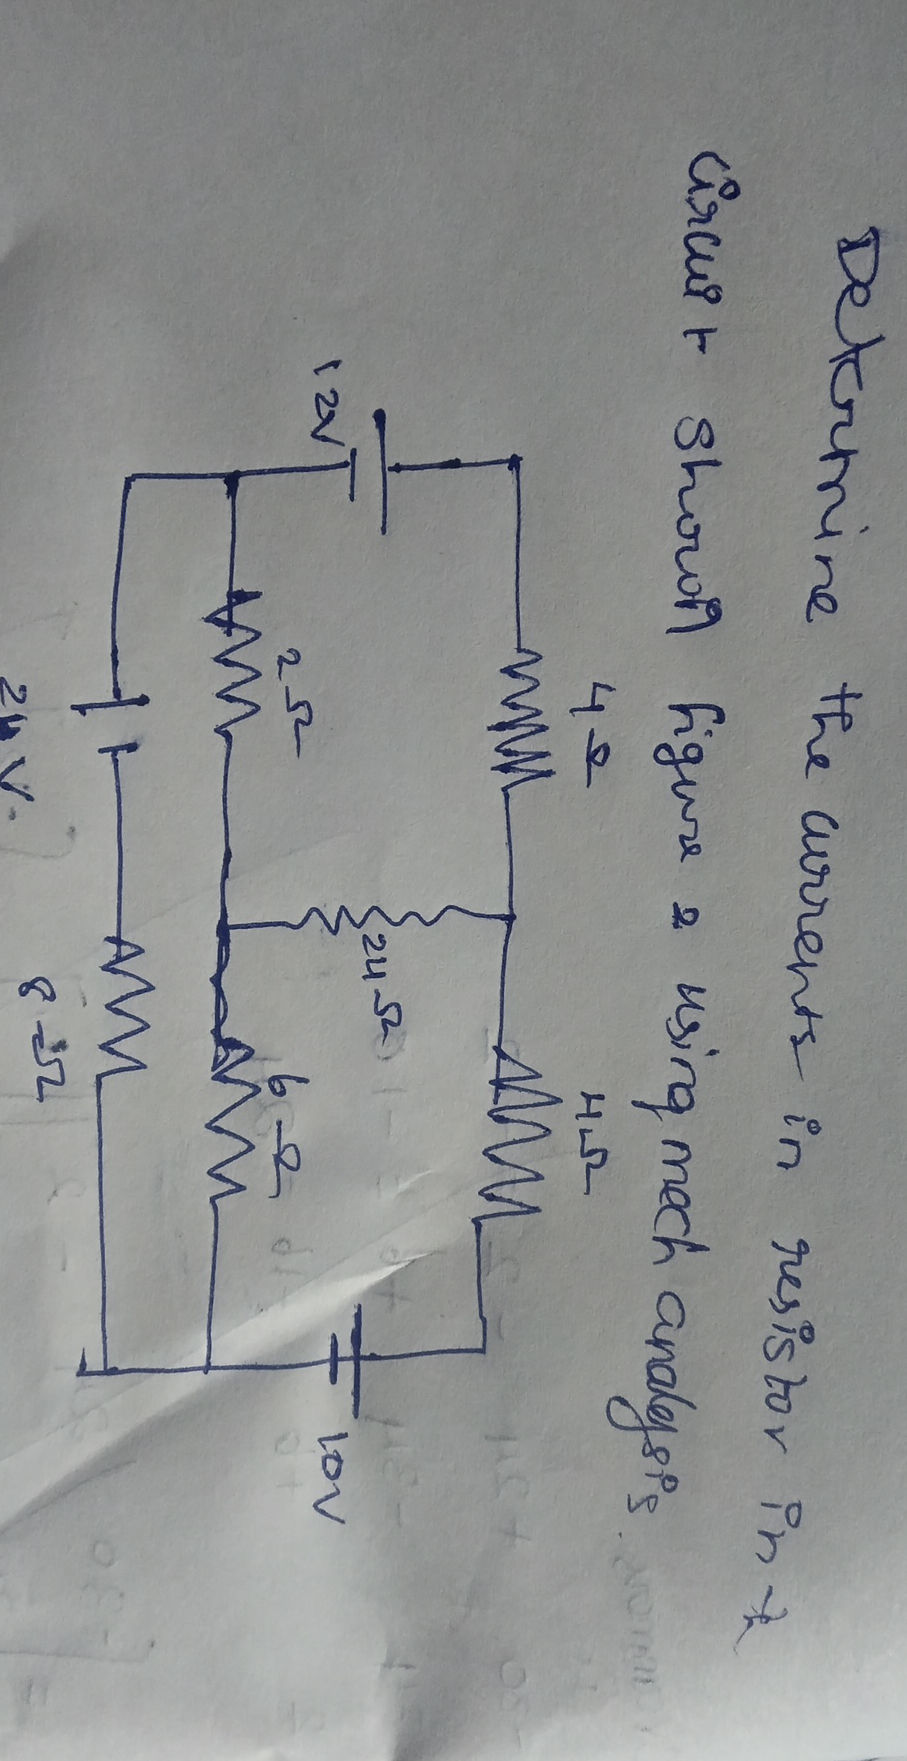 Determine the currents in resistor in the
circuit shown figure 2 using mech analysis.
4Ω
4Ω
12V
24Ω
10V
2Ω
6Ω
24V.
8Ω